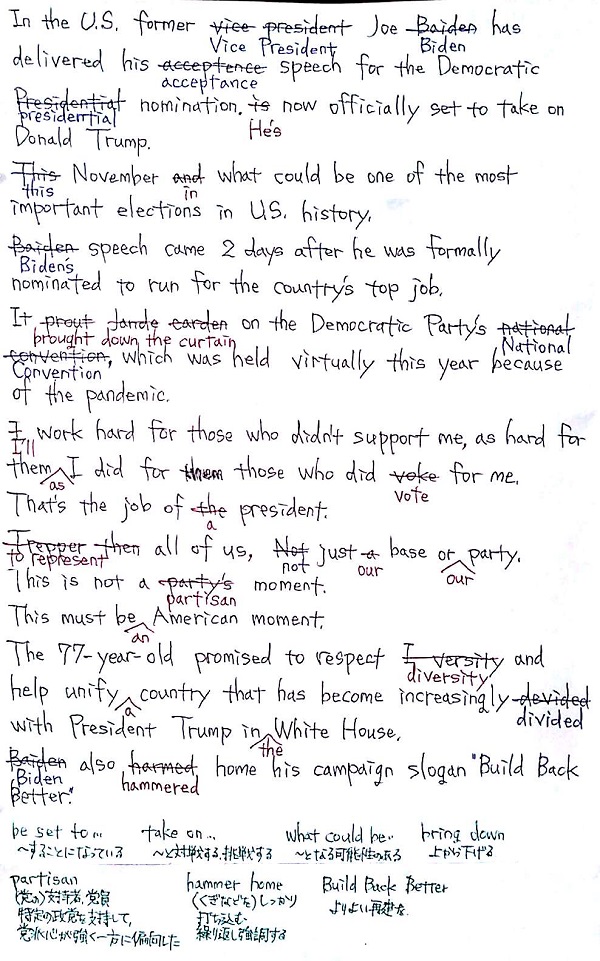 In the U.S. former vice president Joe Baiden has
Vice President Biden
delivered his acceptence speech for the Democratic
acceptance
Presidential nomination. is now officially set to take on
presidential He's
Donald Trump.
This November and what could be one of the most
this in
important elections in U.S. history.
Baiden speech came 2 days after he was formally
Biden's
nominated to run for the country's top job.
It prout jande carden on the Democratic Party's national
brought down the curtain National
convention, which was held virtually this year because
Convention
of the pandemic.
I work hard for those who didn't support me, as hard for
I'll
them I did for them those who did voke for me.
as vote
That's the job of the president.
a
I repper then all of us, Not just a base or party.
to represent not our our
This is not a party's moment.
partisan
This must be American moment.
an
The 77-year-old promised to respect I versity and
diversity
help unify country that has become increasingly devided
a divided
with President Trump in White House.
the
Baiden also harmed home his campaign slogan "Build Back
Biden hammered
Better."
be set to... take on... what could be.. bring down
〜することになっている 〜と対戦する、挑戦する 〜となる可能性のある 上から下げる
partisan hammer home Build Back Better
(党の)支持者、党員 (くぎなどを)しっかり よりよい再建を
特定の政党を支持して、 打ち込む
党派心が強く一方に偏向した 繰り返し強調する